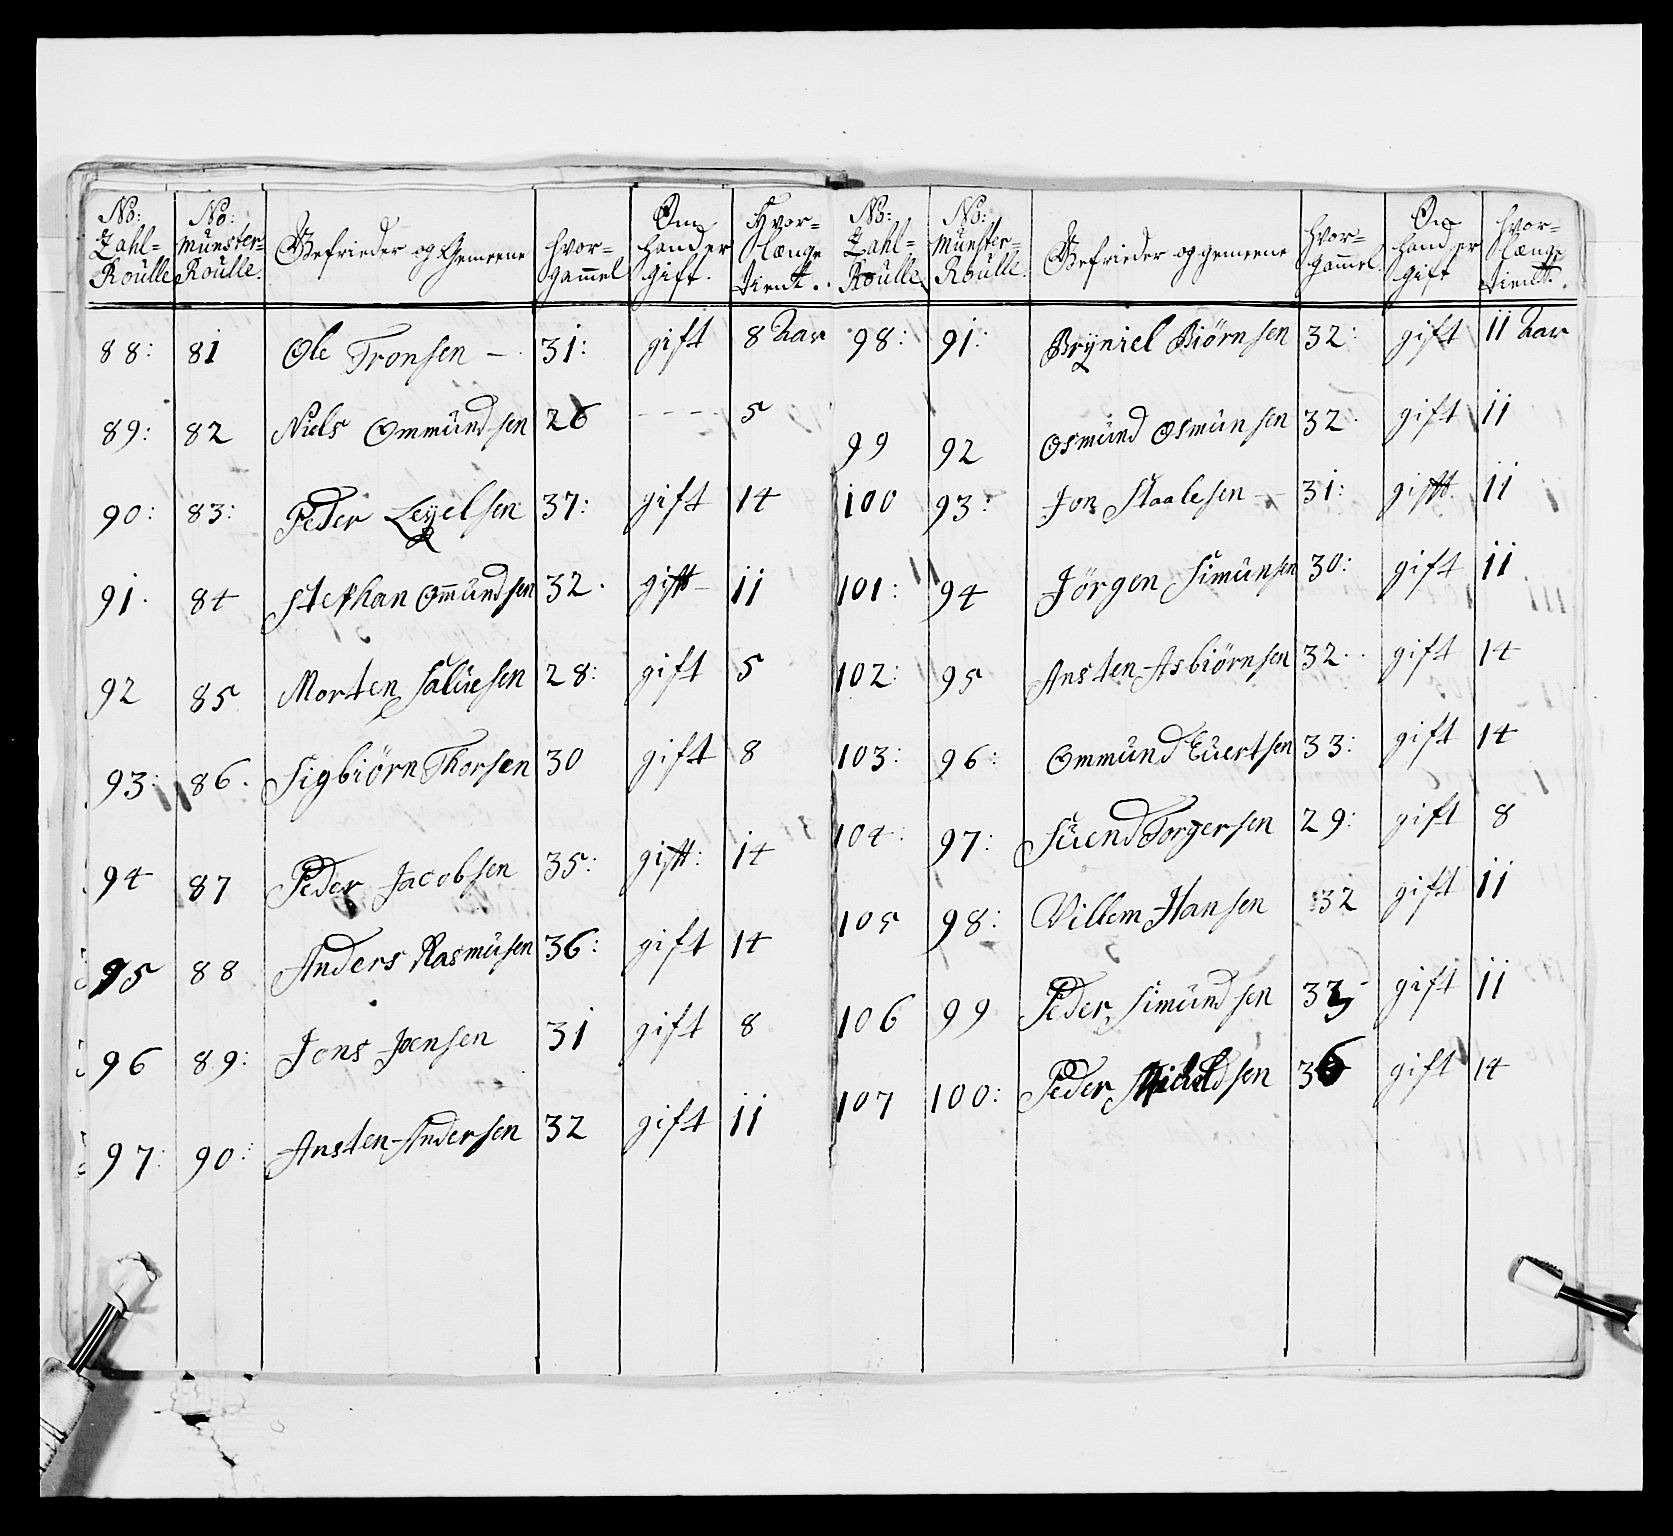 No: Zahl= Roulle
No: Münster= Roulle.
Gefrieder og Gemeene
hvor= gammel
Om hand er gift.
Hvor= længe tient.
88: 81 Ole Tronsen – 31: gift 8 Aar
89: 82 Niels Ommündsen 26 - - - - 5
90: 83: Peder Leyelsen 37: gift 14
91. 84 Stephan Ommündsen 32. gift 11
92 85 Morten Salüesen 28: gift 5
93: 86. Sigbiörn Thorsen 30 gift 8
94 87 Peder Jacobsen 35: gift: 14
95 88 Anders Rasmüsen 36: gift 14
96 89: Jens Joensen 31 gift 8
97: 90: Ansten Andersen 32 gift 11
No: Zahl= Roulle
No: Münster= Roulle.
Gefrieder og gemeene
hvor= gammel.
Om hand er gift
hvor= længe tient.
98: 91: Bryniel Biörnsen 32: gift 11 Aar
99 92 Osmünd Osmünsen 32. gift 11
100 93: Jon Staalesen – 31: gift 11
101: 94 Jörgen Simünsen 30: gift 11
102: 95 Ansten Asbiörnsen 32. gift 14
103: 96: Ommünd Eüertsen 33: gift 14
104: 97: Süend Torgersen 29: gift 8
105 98: Villem Hansen 32 gift 11
106 99 Peder Simündsen 33 gift 11
107 100: Peder 36 gift 14